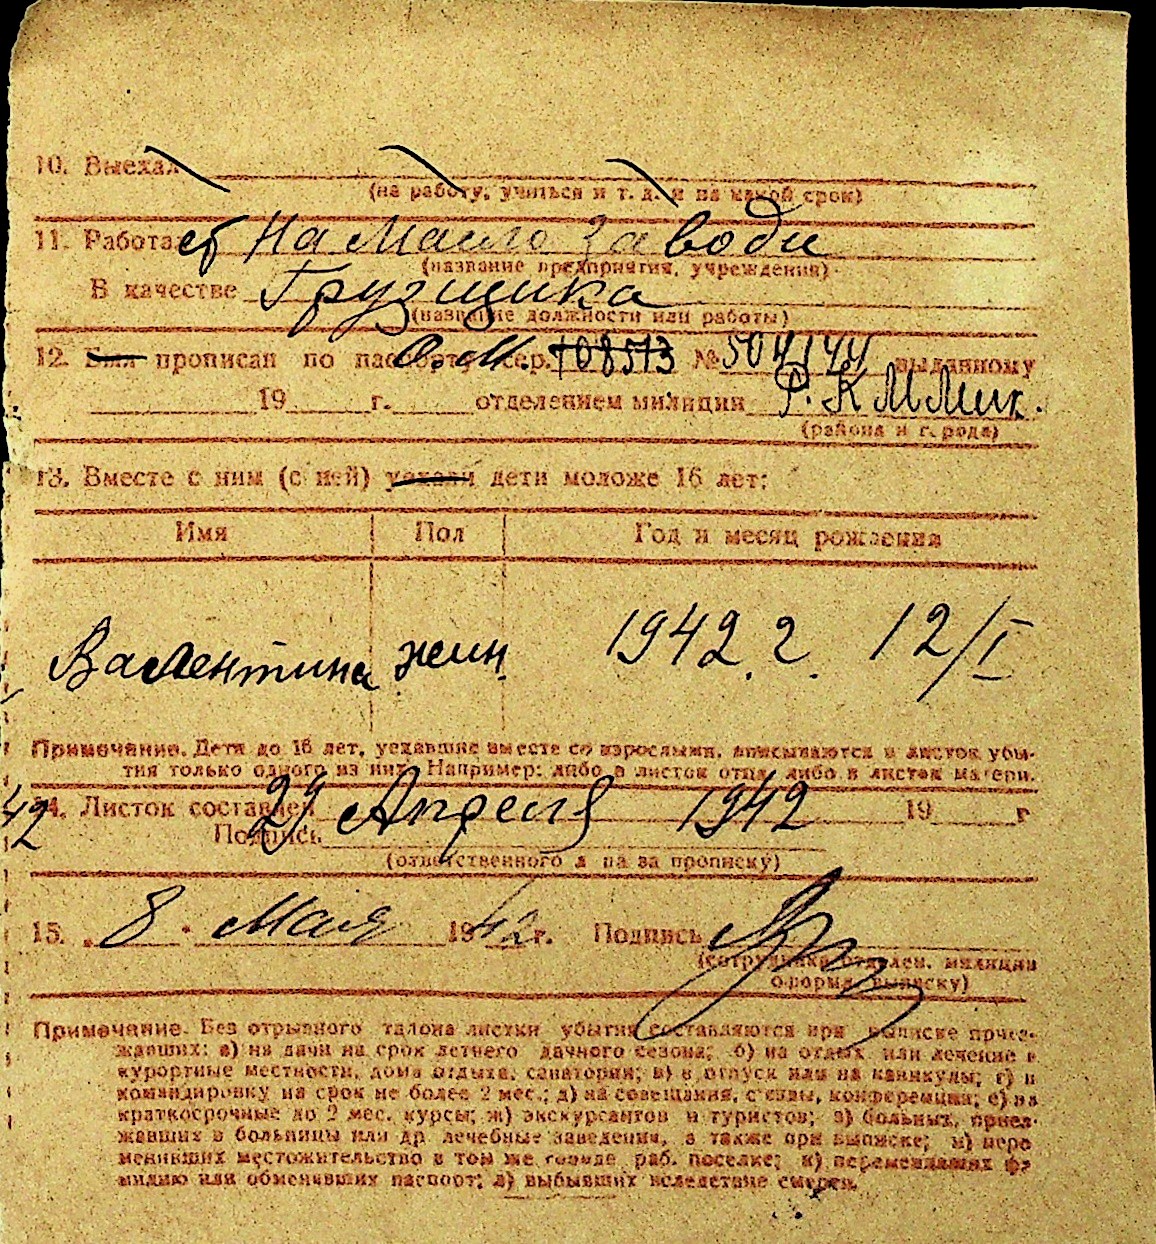 10. Выехал
(на работу, учиться и т. д. и на какой срок)
11. Работает На Маслозаводи
(название предприятия, учреждения)
В качестве Грузщика
(название должности или работы)
12. Был прописан по паспорту О.М. сер. № 504144 выданному
19 г. отделением милиции Р.К.М. Мик.
(района и города)
13. Вместе с ним (с ней) уехали дети моложе 16 лет:
Имя Пол Год и месяц рождения
Валентина жин. 1942 г. 12/I
Примечание. Дети до 16 лет, уехавшие вместе со взрослыми, вписываются в листок убы-
тия только одного из них. Например: либо в листок отца, либо в листок матери.
14. Листок составлен 29 Апреля 1942 19 г
42
Подпись
(ответственного л па за прописку)
15. „ 8 " Мая 1942 г. Подпись
(сотрудника отделен. милиции
оформ. выписку)
Примечание. Без отрывного талона листки убытия составляются при выписке приез-
жавших: а) на дачи на срок летнего дачного сезона; б) на отдых или лечение в
курортные местности, дома отдыха, санатории; в) в отпуск или на каникулы; г) в
командировку на срок не более 2 мес.; д) на совещания, с'езды, конференции; е) на
краткосрочные до 2 мес. курсы; ж) экскурсантов и туристов; з) больных, приез-
жавших в больницы или др. лечебные заведения, а также при выписке; и) пере
менивших местожительство в том же городе раб. поселке; к) переменивших фа
милию или обменявших паспорт; л) выбывших вследствие смерти.